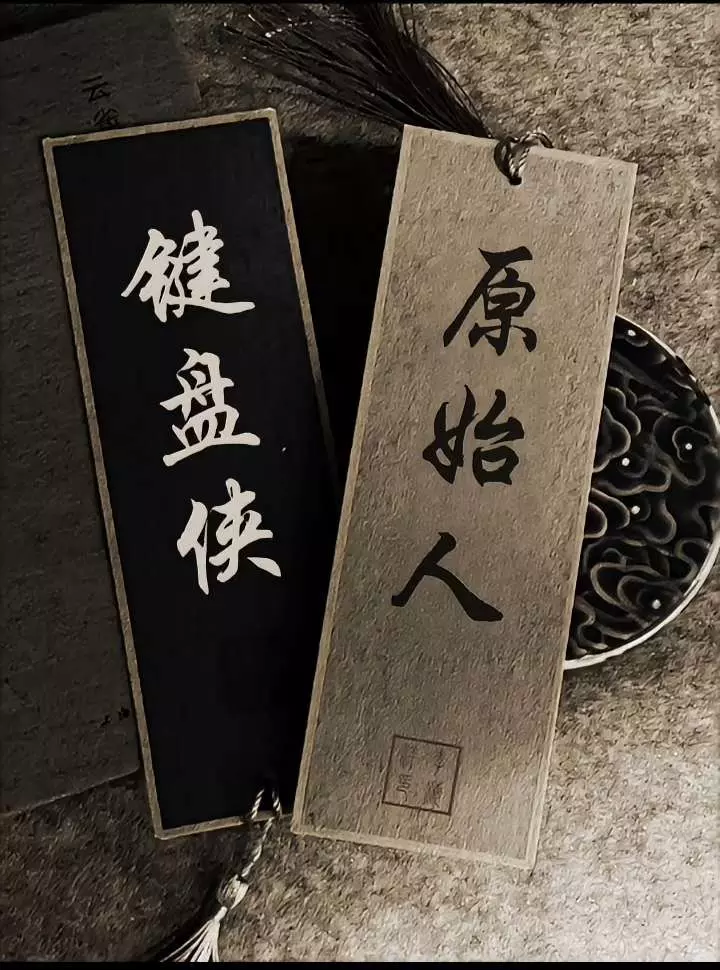 键盘侠
原始人